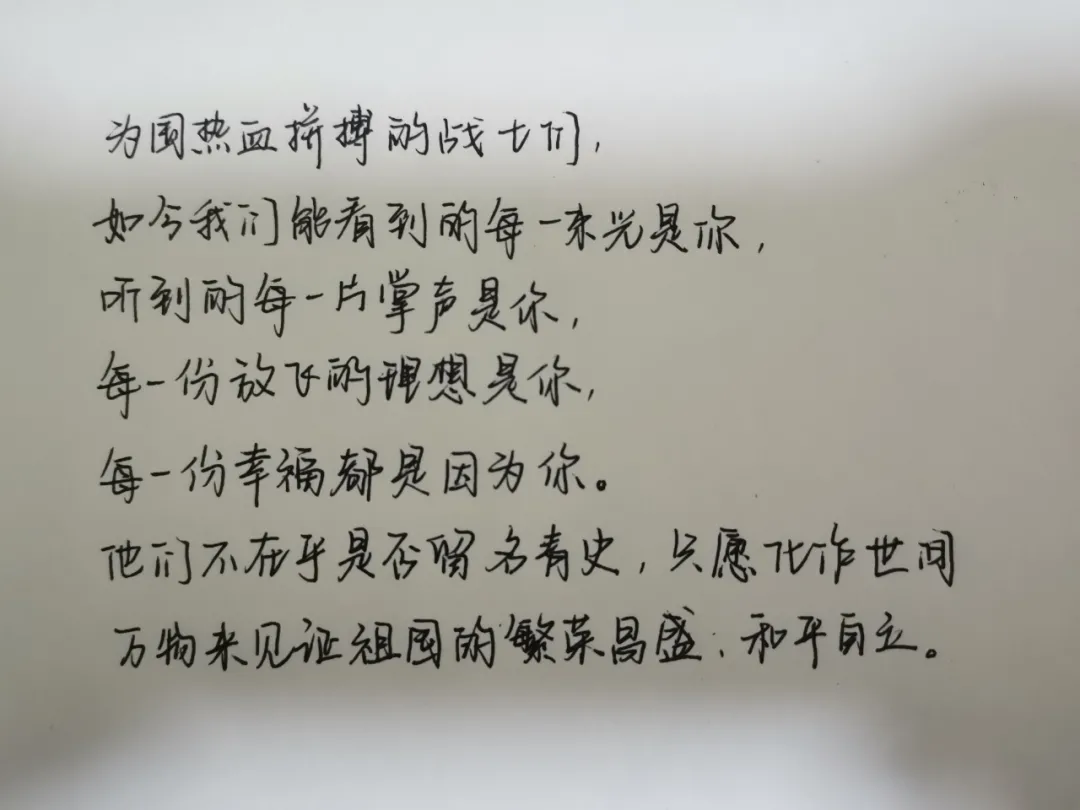 为国热血拼搏的战士们，
如今我们能看到的每一束光是你，
听到的每一片掌声是你，
每一份放飞的理想是你，
每一份幸福都是因为你。
他们不在乎是否留名青史，只愿化作世间
万物来见证祖国的繁荣昌盛、和平自立。